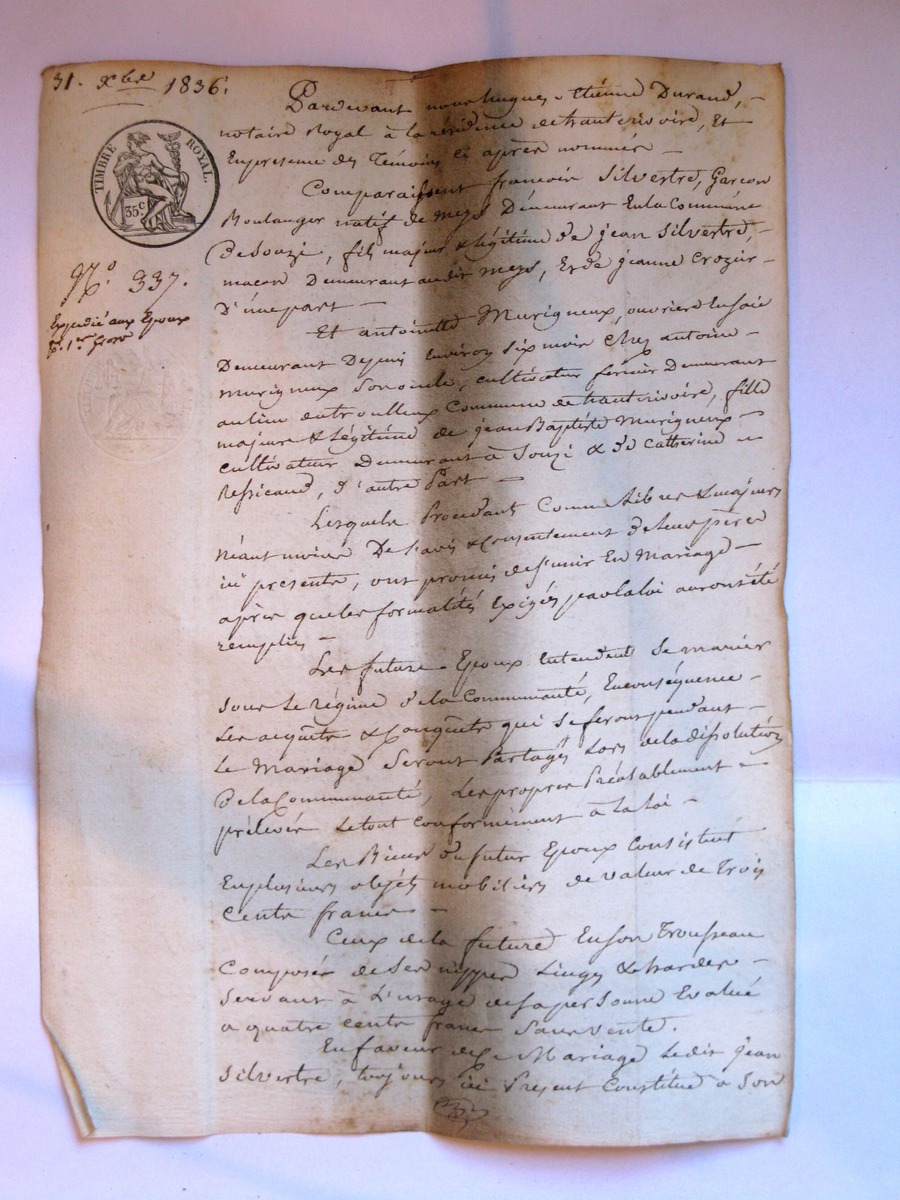 31. Xbre 1836.
TIMBRE ROYAL.
35c
No. 337.
Expédié aux Epoux
Pr. 1er Gros
Pardevant nous hugues Etiénne Durand,
notaire Royal à la résidence de hauterivoire, Et
En presence des Témoins ci après nommés
Comparaissent francois Silvestre, Garcon
Boulanger natif de Meys Demeurant En la Commune
De Souzi, fils majeur & légitime de jean Silvestre,
macon Demeurant audit Meys, Et de jeanne Crozier
D'une part
Et antoinette Murigneux, ouvriere En soie
Demeurant Depuis Environ six mois chez antoine
Murigneux son oncle, cultivateur fermier Demeurant
au lieu de trouilleux Commune de hauterivoire, fille
majeure & légitime de jean Baptiste Murigneux
cultivateur Demeurant à Souzi & de Catherine
Ressicaud, d'autre Part
Lesquels Procedant Comme Libres & majeurs
Néantmoins De l'avis & Consentement de leurs pères
ici présents, ont promis de s'unir En Mariage
après que les formalités Exigées par la loi auront été
remplies
Les futurs Epoux Entendent se marier
sous le régime de la Communauté, En conséquence
Les acquets & Conquets qui se feront pendant
Le Mariage seront Partagés Lors de la dissolution
De la Communauté, Les propres Préalablement
prélevés Le tout conformément à la loi
Les Biens du futur Epoux Consistent
En plusieurs objets mobiliers de valeur de Trois
Cents francs
Ceux de la future En son Trousseau
Composée de ses nippes Linges & hardes
servant à L'usage de sa personne Evalué
a quatre cents francs sans vente.
En faveur de ce Mariage Ledit jean
Silvestre, toujours ici Présent Constitue a Son